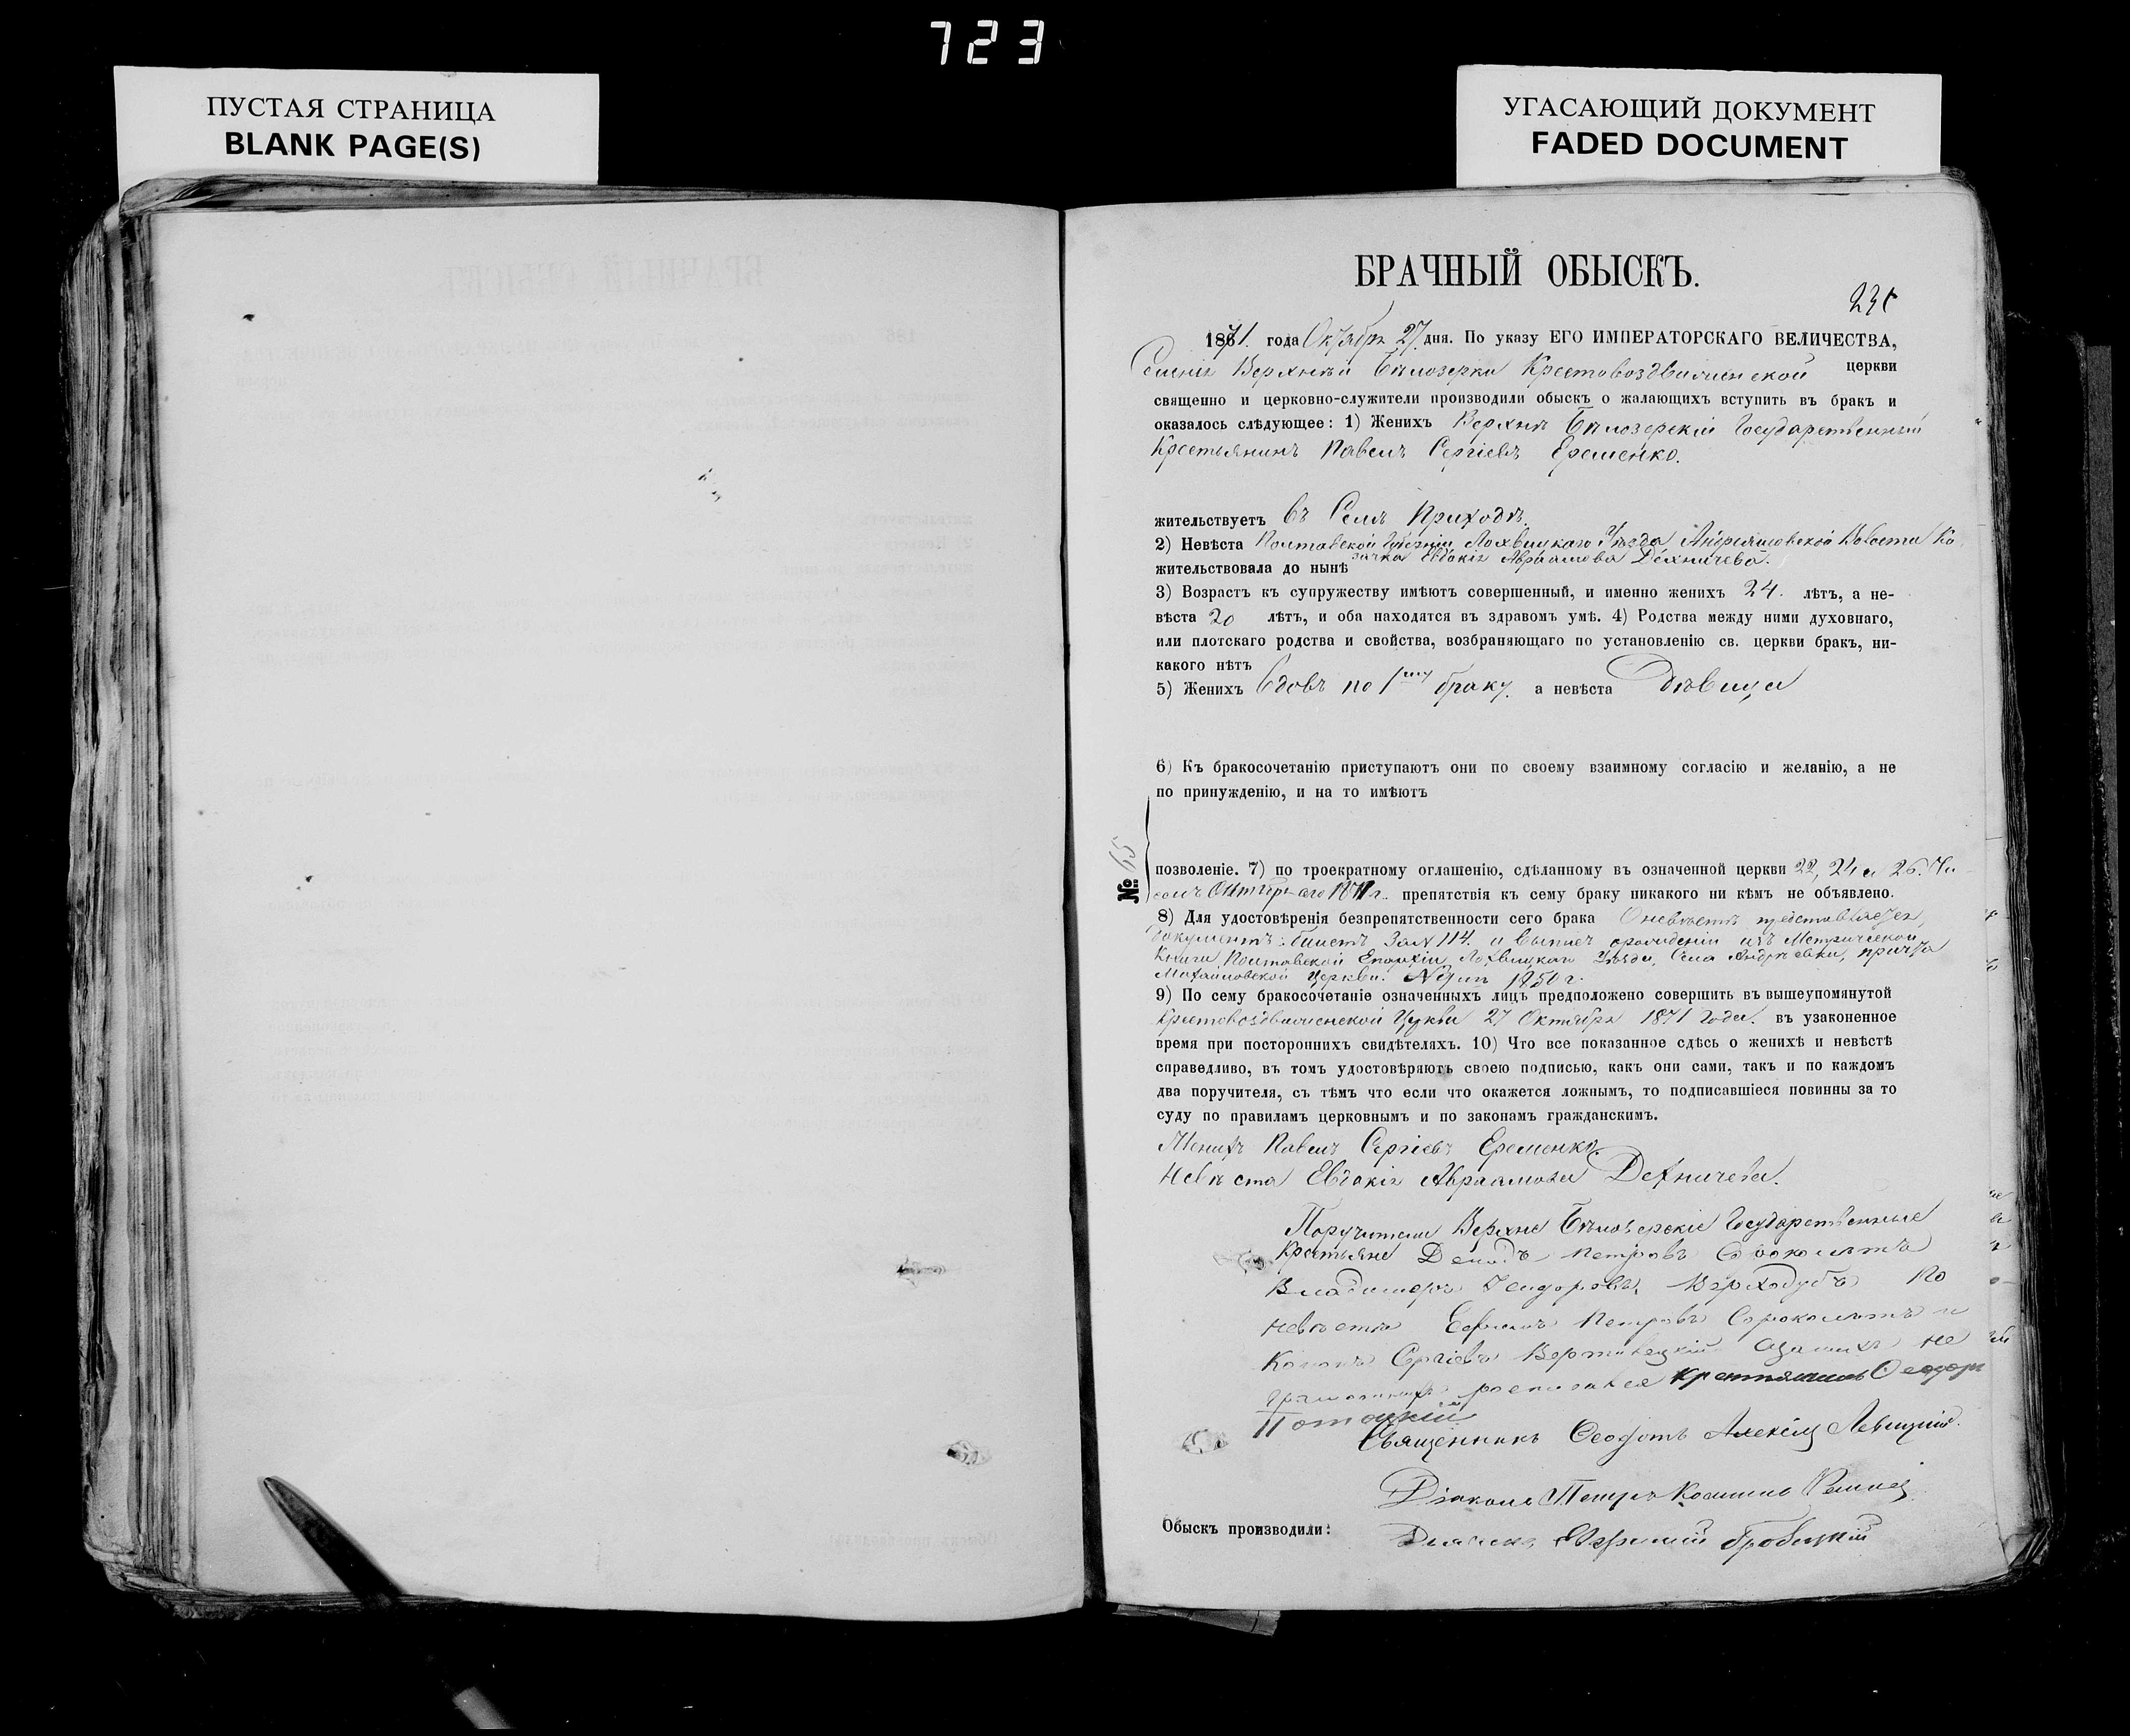 723
ПУСТАЯ СТРАНИЦА
BLANK PAGE(S)
УГАСАЮЩИЙ ДОКУМЕНТ
FADED DOCUMENT
БРАЧНЫЙ ОБЫСКЪ.
1871. года Октября 27 дня. По указу ЕГО ИМПЕРАТОРСКАГО ВЕЛИЧЕСТВА,
Селенія Верхней Бѣлозерки Крестовоздвиженской церкви
священно и церковно-служители производили обыскъ о жалающихъ вступить въ бракъ и
оказалось слѣдующее: 1) Женихъ Верхнѣ Бѣлозерскій Государственный
Крестьянинъ Павелъ Сергіевъ Еременко.
жительствуетъ въ Семъ Приходѣ
2) Невѣста Полтавской Губерніи Лохвицкаго Уѣзда Андреяшовской Волости Ка
зачка Евдокія Авраамова Дехничева.
жительствовала до нынѣ
3) Возрастъ къ супружеству имѣютъ совершенный, и именно женихъ 24. лѣтъ, а не-
вѣста 20 лѣтъ, и оба находятся въ здравомъ умѣ. 4) Родства между ними духовнаго,
или плотскаго родства и свойства, возбраняющаго по установленію св. церкви бракъ, ни-
какого нѣтъ
5) Женихъ вдовъ по 1му браку. а невѣста дѣвица
6) Къ бракосочетанію приступаютъ они по своему взаимному согласію и желанію, а не
по принужденію, и на то имѣютъ
№ 65
позволеніе. 7) по троекратному оглашенію, сдѣланному въ означенной церкви 22, 24 и 26. Чи
слъ Октября сего 1871 г. препятствія къ сему браку никакого ни кѣмъ не объявлено.
8) Для удостовѣренія безпрепятственности сего брака О невѣстѣ представляется
документъ: билетъ За № 114. и выпись о рожденіи изъ Метрической
Книги Полтавской Епархіи, Лохвицкаго Уѣзда, Села Андреевки, причта
Михайловской Церкви. 1850 г.
9) По сему бракосочетаніе означенныхъ лицъ предположено совершить въ вышеупомянутой
Крестовоздвиженской Церкви 27 Октября 1871 Года. въ узаконенное
время при постороннихъ свидѣтеляхъ. 10) Что все показанное сдѣсь о женихѣ и невѣстѣ
справедливо, въ томъ удостовѣряютъ своею подписью, какъ они сами, такъ и по каждомъ
два поручителя, съ тѣмъ что если что окажется ложнымъ, то подписавшіеся повинны за то
суду по правиламъ церковнымъ и по законамъ гражданскимъ.
Женихъ Павелъ Сергіевъ Еременко.
Невѣста Евдокія Авраамова Дехничева.
Поручители Верхне Бѣлозерскіе Государственные
Крестьяне Петровъ
Владимеръ Феодоровъ Верходубъ По
невѣстѣ Ефимъ Петровъ Сорокалѣтъ и
Сергіевъ не
грамотныхъ росписался крестьянинъ Феодоръ
Потоцкій
Священникъ Феодотъ Алексѣй Левицкій.
Діаконъ Петръ
Обыскъ производили:
Дьячекъ Евфимій Гробицкій